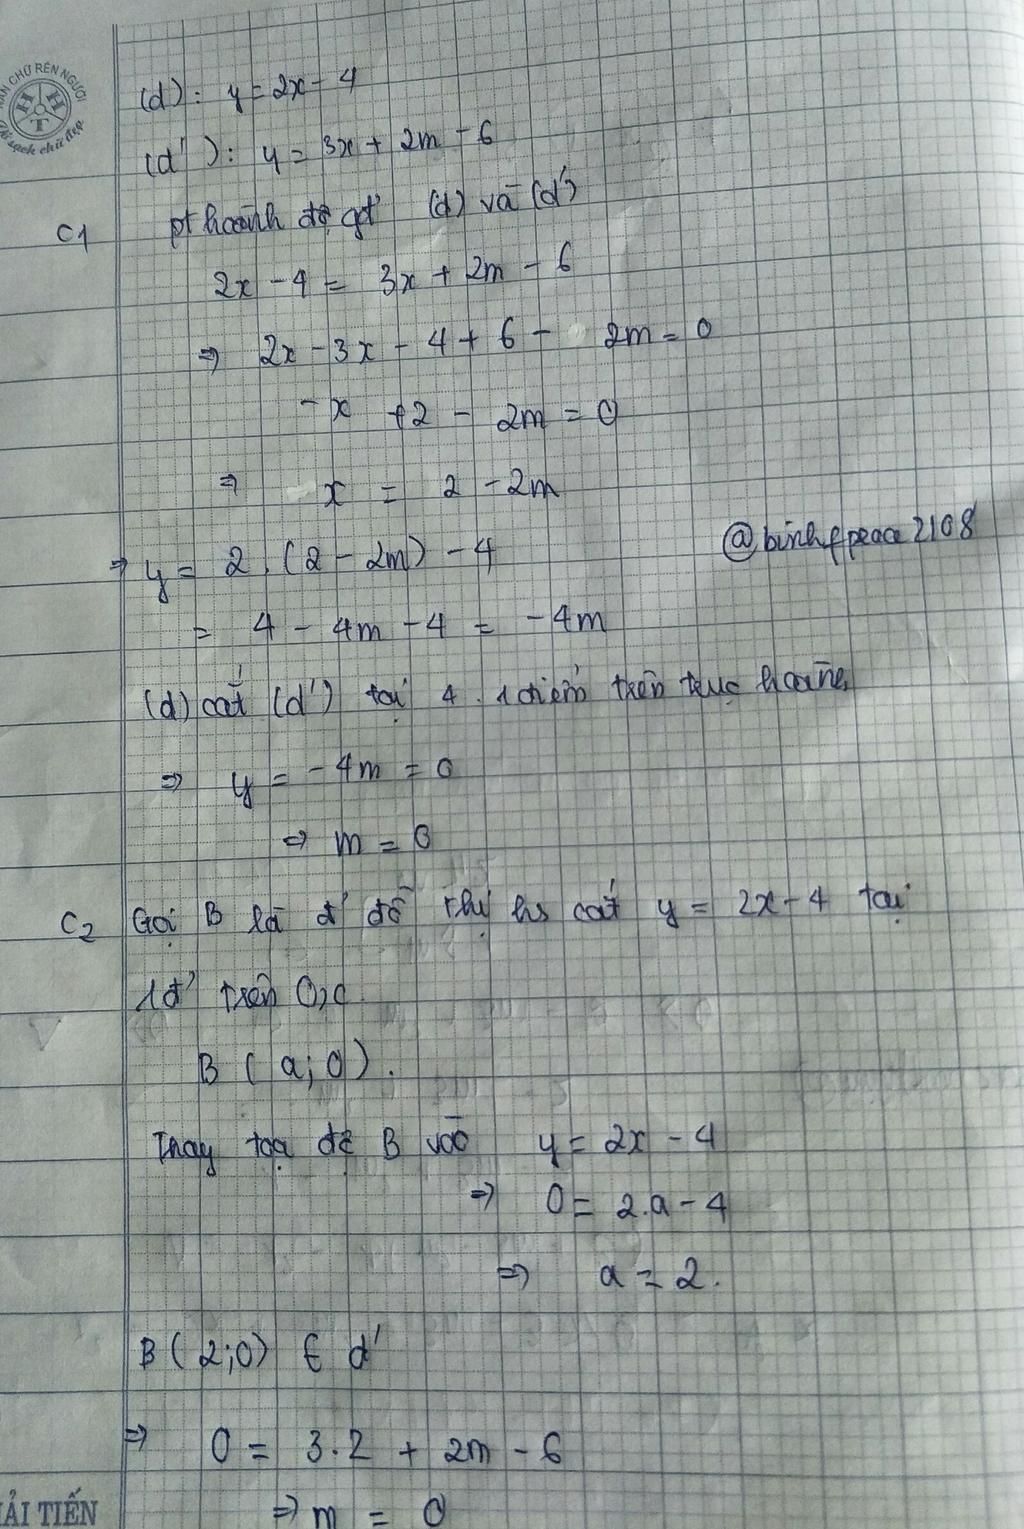 (d): y = 2x - 4
(d'): y = 3x + 2m - 6
C1 pt hoành độ gđ' (d) và (d')
2x - 4 = 3x + 2m - 6
⇒ 2x - 3x - 4 + 6 - 2m = 0
- x + 2 - 2m = 0
⇒ x = 2 - 2m
⇒ y = 2. (2 - 2m) - 4
@binhfpeace2108
= 4 - 4m - 4 = -4m
(d) cắt (d') tại 4. 1 điểm trên trục hoành
⇒ y = -4m = 0
⇒ m = 0
C2 Gọi B là đ' đồ thị hs cắt y = 2x - 4 tại
1đ' trên Ox
B (a; 0).
Thay tọa độ B vào y = 2x - 4
⇒ 0 = 2.a - 4
⇒ a = 2.
B (2; 0) ∈ d'
⇒ 0 = 3.2 + 2m - 6
⇒ m = 0
ẢI TIẾN